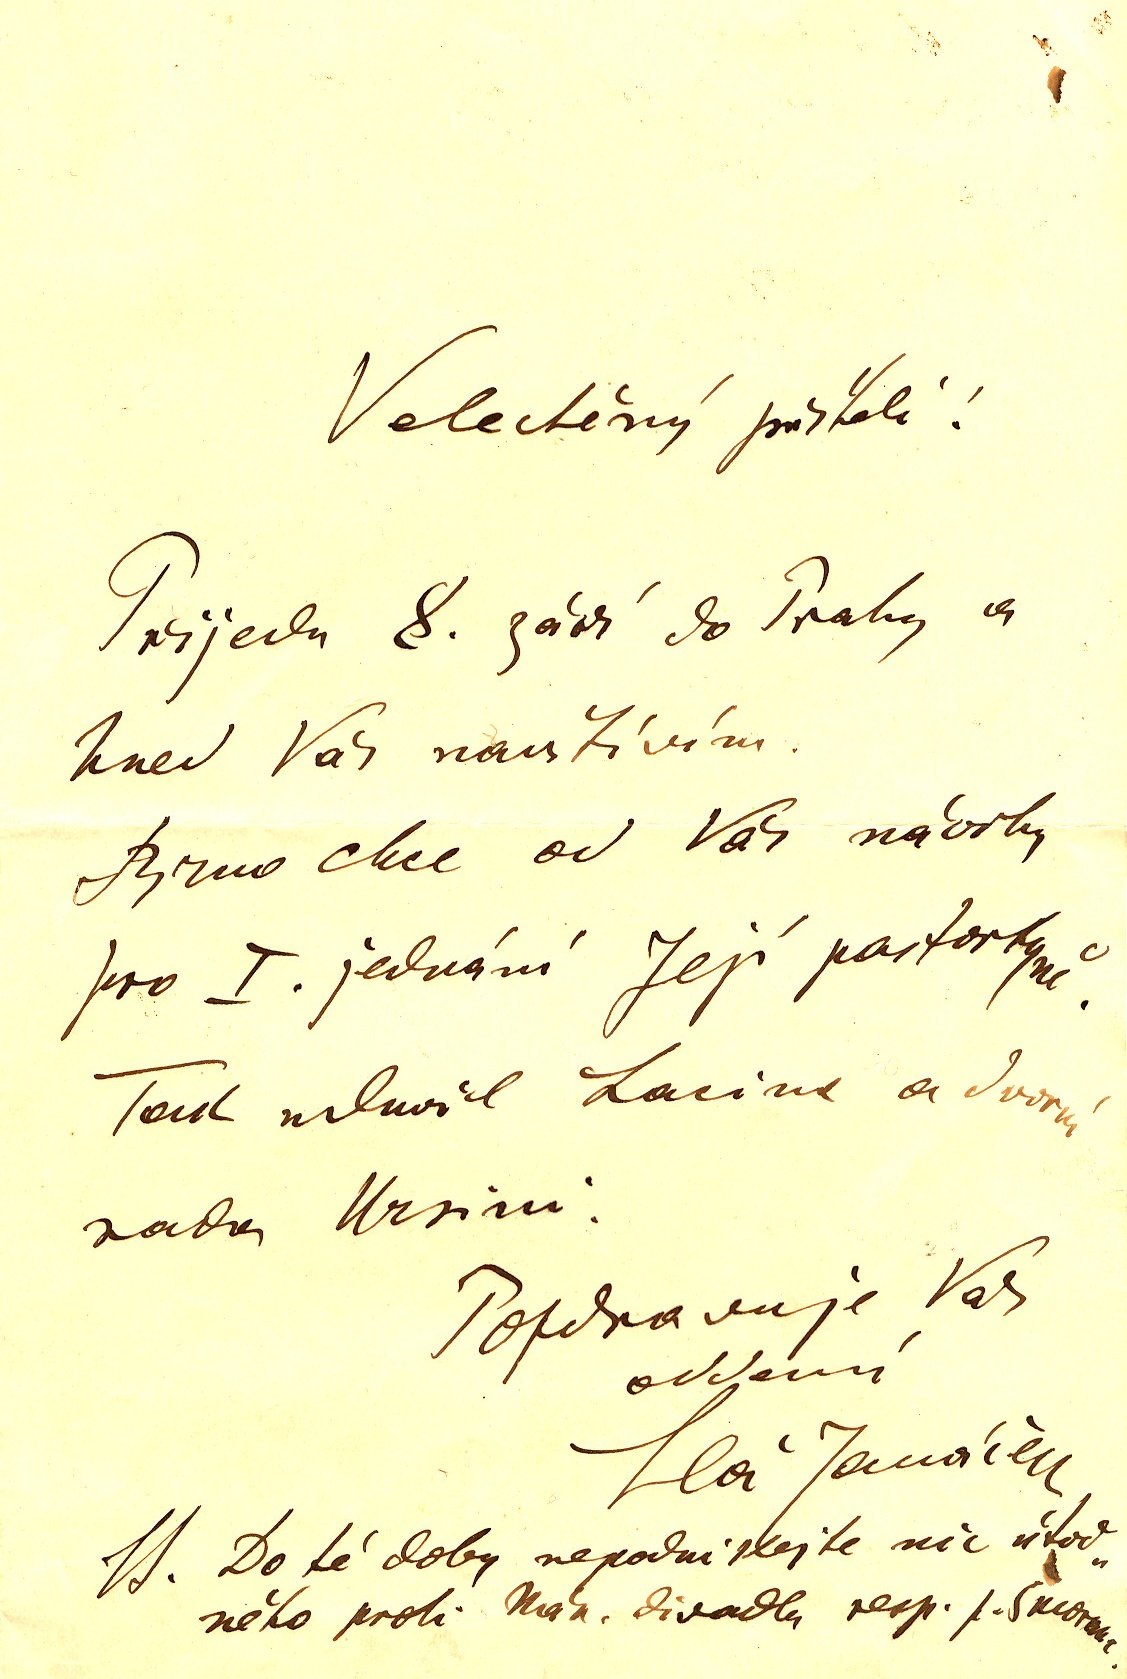 Velectěný příteli!
Přijedu 8. září do Prahy a
hned Vás navštívím.
Brno chce od Vás návrhy
pro I. jednání Její pastorkyně.
Tak mluvil Lacina a dvorní
rada Ursini.
Pozdravuje Vás
oddaný
Lš Janáček
Do té doby nepodnikejte nic útoč„
ného proti Nár. divadlu resp. p.